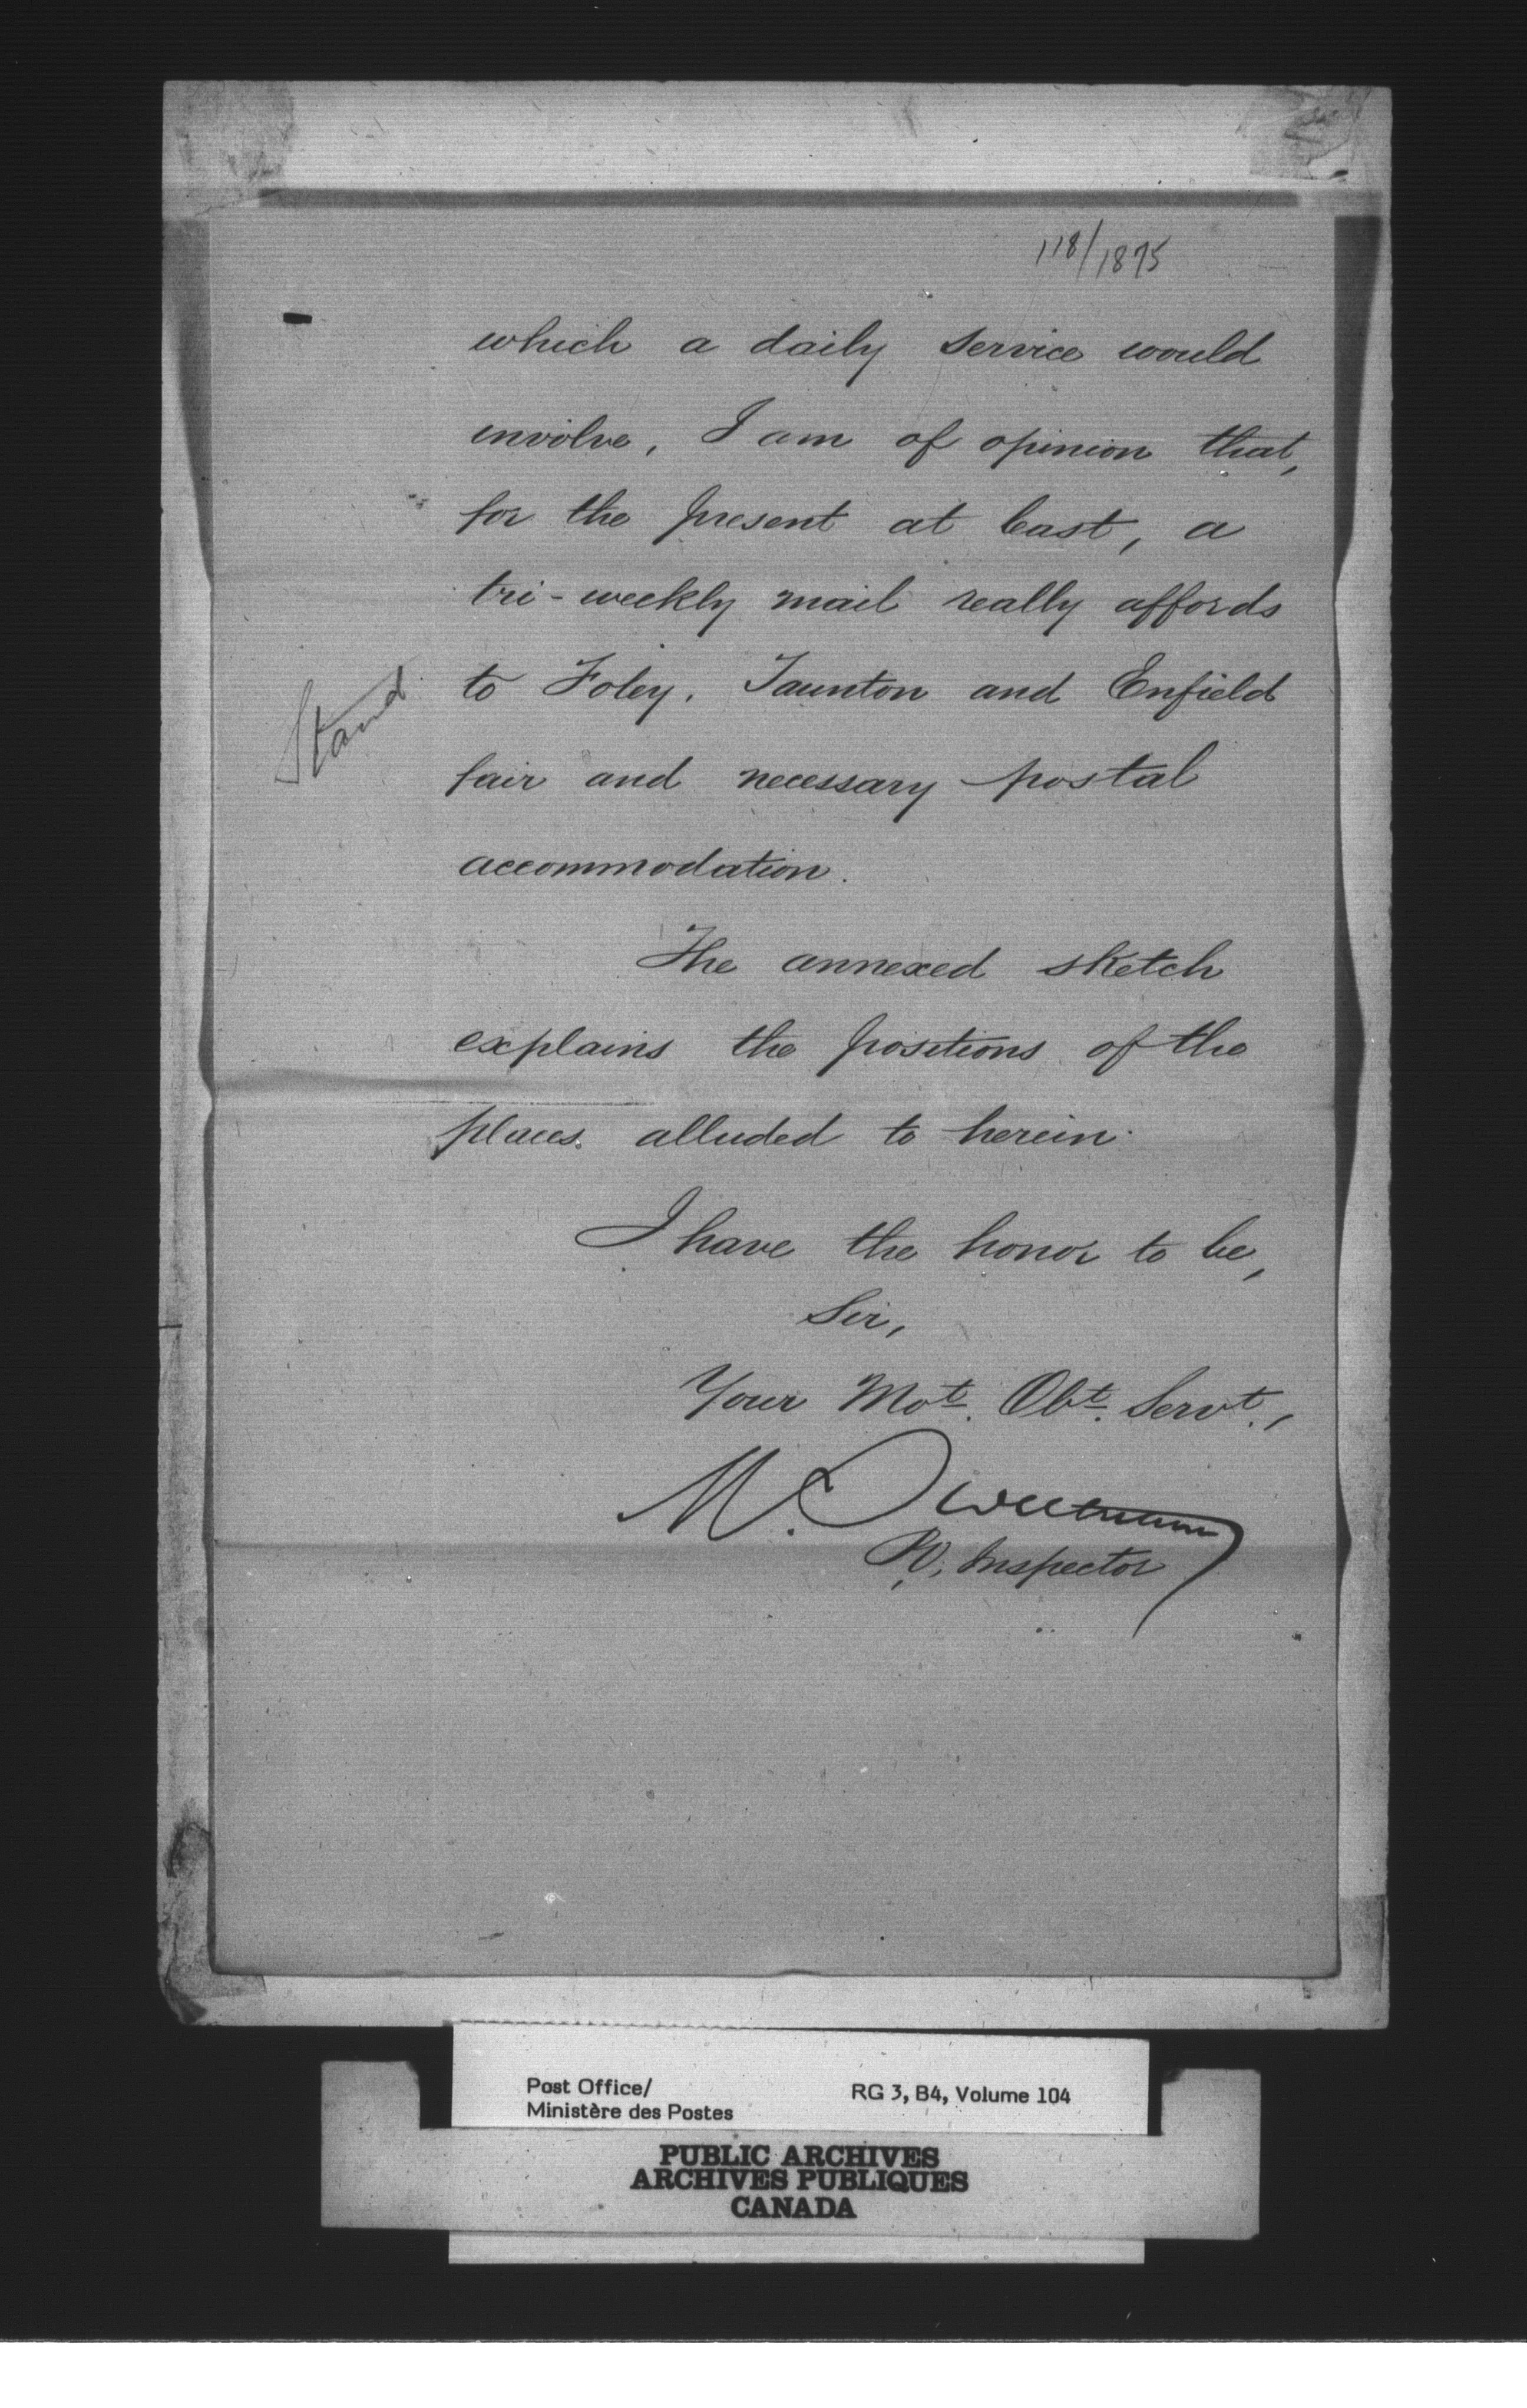 118/1875
which a daily service would
involve, I am of opinion that,
for the present at least, a
tri-weekly mail really affords
to Foley, Taunton and Enfield
Stand
fair and necessary postal
accommodation.
The annexed sketch
explains the positions of the
places alluded to herein.
I have the honor to be,
Sir,
Your Mot. Obt. Servt.,
M. Sweetnam
P.O. Inspector
Post Office/
Ministère des Postes
RG 3, B4, Volume 104
PUBLIC ARCHIVES
ARCHIVES PUBLIQUES
CANADA